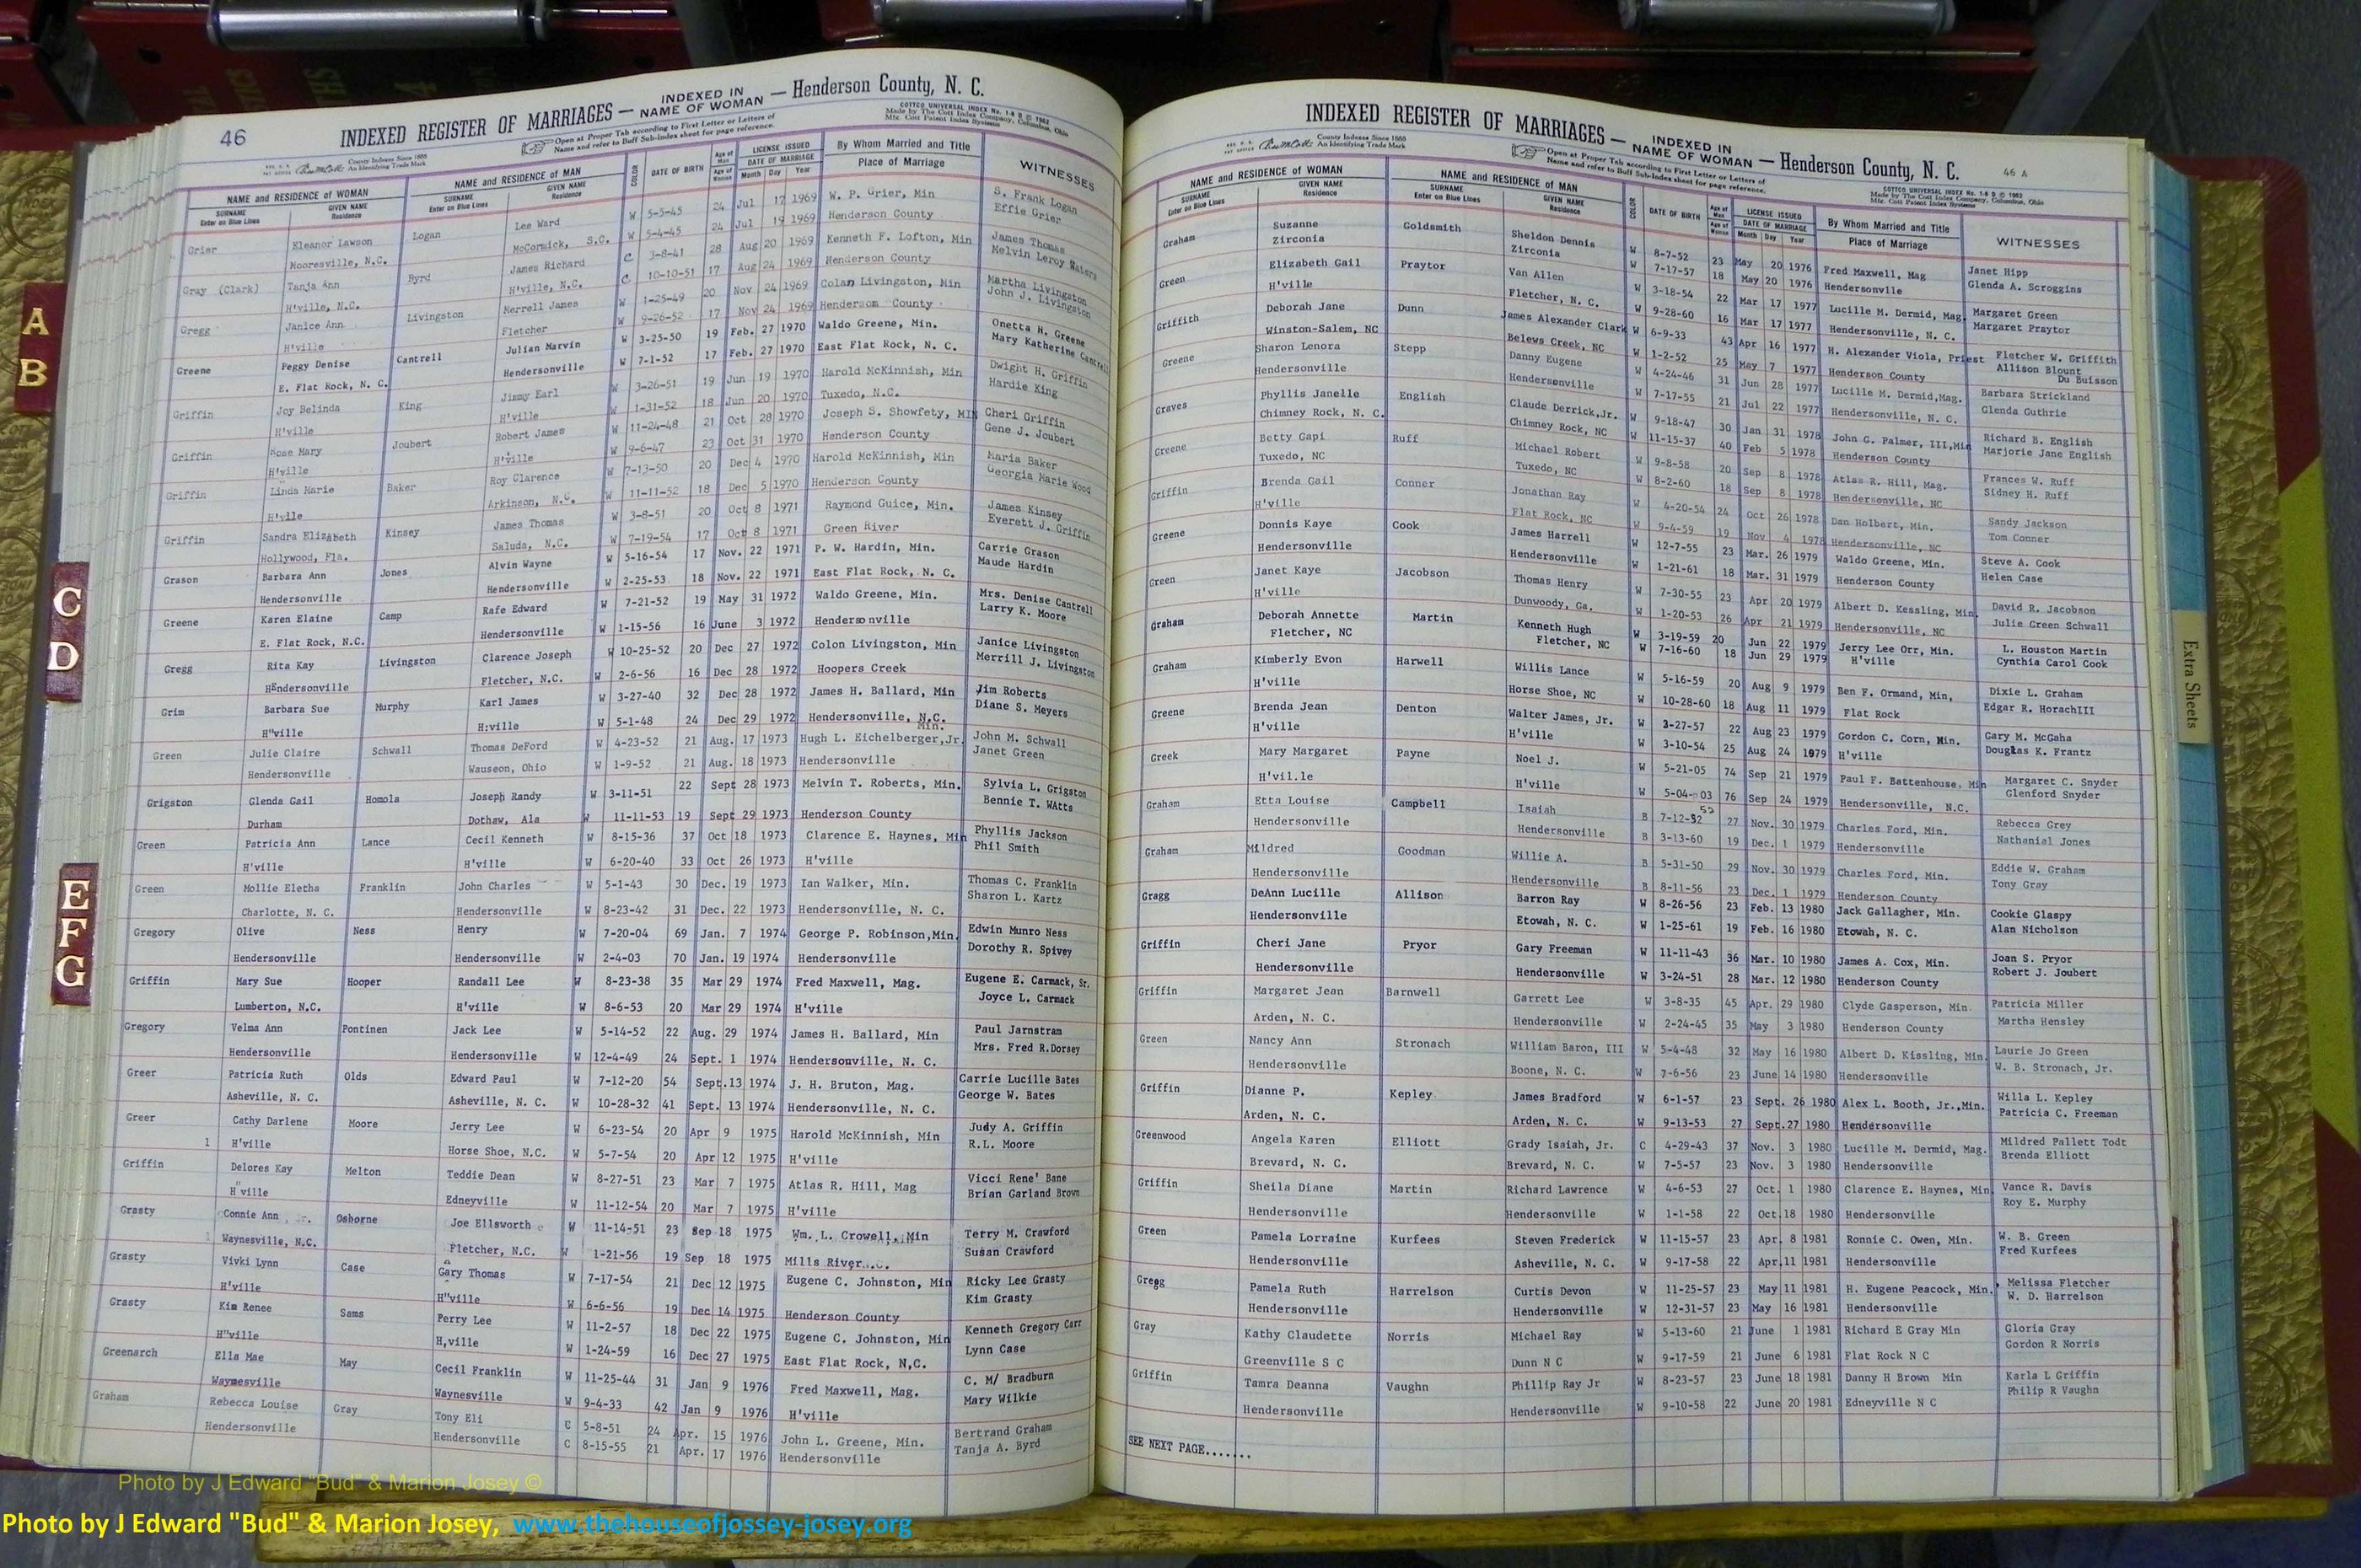 46
INDEXED REGISTER OF MARRIAGES — INDEXED IN NAME OF WOMAN — Henderson County, N. C.
Open at Proper Tab according to First Letter or Letters of
Name and refer to Buff Sub-Index sheet for page reference.
COTTCO UNIVERSAL INDEX
Made by The Cott Index Company, Columbus, Ohio
County Indexes Since 1888
An Identifying Trade Mark
NAME and RESIDENCE of WOMAN NAME and RESIDENCE of MAN COLOR DATE OF BIRTH Age of Man Age of Woman LICENSE ISSUED DATE OF MARRIAGE By Whom Married and Title Place of Marriage WITNESSES
SURNAME Enter on Blue Lines GIVEN NAME Residence SURNAME Enter on Blue Lines GIVEN NAME Residence Month Day Year
Grier Eleanor Lawson Logan Lee Ward W 5-5-45 24 Jul 17 1969 W. P. Grier, Min S. Frank Logan
Mooresville, N.C. McCormick, S.C. W 5-4-45 24 Jul 19 1969 Henderson County Effie Grier
Gray (Clark) Tanja Ann Byrd James Richard C 3-8-41 28 Aug 20 1969 Kenneth F. Lofton, Min James Thomas
H'ville, N.C. H'ville, N.C. C 10-10-51 17 Aug 24 1969 Henderson County Melvin Leroy Waters
Gregg Janice Ann Livingston Merrell James W 1-25-49 20 Nov 24 1969 Colan Livingston, Min Martha Livingston
H'ville Fletcher W 9-26-52 17 Nov 24 1969 Henderson County John J. Livingston
Greene Peggy Denise Cantrell Julian Marvin W 3-25-50 19 Feb. 27 1970 Waldo Greene, Min. Onetta H. Greene
E. Flat Rock, N. C. Hendersonville W 7-1-52 17 Feb. 27 1970 East Flat Rock, N. C. Mary Katherine Cantrell
Griffin Joy Belinda King Jimmy Earl W 3-26-51 19 Jun 19 1970 Harold McKinnish, Min Dwight H. Griffin
H'ville H'ville W 1-31-52 18 Jun 20 1970 Tuxedo, N.C. Hardie King
Griffin Rose Mary Joubert Robert James W 11-24-48 21 Oct 28 1970 Joseph S. Showfety, MIN Cheri Griffin
H'ville H'ville W 9-6-47 23 Oct 31 1970 Henderson County Gene J. Joubert
Griffin Linda Marie Baker Roy Clarence W 7-13-50 20 Dec 4 1970 Harold McKinnish, Min Maria Baker
H'vlle Arkinson, N.C. W 11-11-52 18 Dec 5 1970 Henderson County Georgia Marie Wood
Griffin Sandra Elizabeth Kinsey James Thomas W 3-8-51 20 Oct 8 1971 Raymond Guice, Min. James Kinsey
Hollywood, Fla. Saluda, N.C. W 7-19-54 17 Oct 8 1971 Green River Everett J. Griffin
Grason Barbara Ann Jones Alvin Wayne W 5-16-54 17 Nov. 22 1971 P. W. Hardin, Min. Carrie Grason
Hendersonville Hendersonville W 2-25-53 18 Nov. 22 1971 East Flat Rock, N. C. Maude Hardin
Greene Karen Elaine Camp Rafe Edward W 7-21-52 19 May 31 1972 Waldo Greene, Min. Mrs. Denise Cantrell
E. Flat Rock, N.C. Hendersonville W 1-15-56 16 June 3 1972 Hendersonville Larry K. Moore
Gregg Rita Kay Livingston Clarence Joseph W 10-25-52 20 Dec 27 1972 Colon Livingston, Min Janice Livingston
Hendersonville Fletcher, N.C. W 2-6-56 16 Dec 28 1972 Hoopers Creek Merrill J. Livingston
Grim Barbara Sue Murphy Karl James W 3-27-40 32 Dec 28 1972 James H. Ballard, Min Jim Roberts
H"ville H:ville W 5-1-48 24 Dec 29 1972 Hendersonville, N.C. Diane S. Meyers
Green Julie Claire Schwall Thomas DeFord W 4-23-52 21 Aug. 17 1973 Hugh L. Eichelberger,Jr. Min. John M. Schwall
Hendersonville Wauseon, Ohio W 1-9-52 21 Aug. 18 1973 Hendersonville Janet Green
Grigston Glenda Gail Homola Joseph Randy W 3-11-51 22 Sept 28 1973 Melvin T. Roberts, Min. Sylvia L. Grigston
Durham Dothaw, Ala W 11-11-53 19 Sept 29 1973 Henderson County Bennie T. WAtts
Green Patricia Ann Lance Cecil Kenneth W 8-15-36 37 Oct 18 1973 Clarence E. Haynes, Min Phyllis Jackson
H'ville H'ville W 6-20-40 33 Oct 26 1973 H'ville Phil Smith
Green Mollie Eletha Franklin John Charles W 5-1-43 30 Dec. 19 1973 Ian Walker, Min. Thomas C. Franklin
Charlotte, N. C. Hendersonville W 8-23-42 31 Dec. 22 1973 Hendersonville, N. C. Sharon L. Kartz
Gregory Olive Ness Henry W 7-20-04 69 Jan. 7 1974 George P. Robinson,Min. Edwin Munro Ness
Hendersonville Hendersonville W 2-4-03 70 Jan. 19 1974 Hendersonville Dorothy R. Spivey
Griffin Mary Sue Hooper Randall Lee W 8-23-38 35 Mar 29 1974 Fred Maxwell, Mag. Eugene E. Carmack, Sr.
Lumberton, N.C. H'ville W 8-6-53 20 Mar 29 1974 H'ville Joyce L. Carmack
Gregory Velma Ann Pontinen Jack Lee W 5-14-52 22 Aug. 29 1974 James H. Ballard, Min Paul Jarnstram
Hendersonville Hendersonville W 12-4-49 24 Sept. 1 1974 Hendersonville, N. C. Mrs. Fred R.Dorsey
Greer Patricia Ruth Olds Edward Paul W 7-12-20 54 Sept.13 1974 J. H. Bruton, Mag. Carrie Lucille Bates
Asheville, N. C. Asheville, N. C. W 10-28-32 41 Sept. 13 1974 Hendersonville, N. C. George W. Bates
Greer Cathy Darlene Moore Jerry Lee W 6-23-54 20 Apr 9 1975 Harold McKinnish, Min Judy A. Griffin
1 H'ville Horse Shoe, N.C. W 5-7-54 20 Apr 12 1975 H'ville R.L. Moore
Griffin Delores Kay Melton Teddie Dean W 8-27-51 23 Mar 7 1975 Atlas R. Hill, Mag Vicci Rene' Bane
H"ville Edneyville W 11-12-54 20 Mar 7 1975 H'ville Brian Garland Brown
Grasty Connie Ann Osborne Joe Ellsworth W 11-14-51 23 Sep 18 1975 Wm. L. Crowell, Min Terry M. Crawford
Waynesville, N.C. Fletcher, N.C. W 1-21-56 19 Sep 18 1975 Mills River Susan Crawford
Grasty Vivki Lynn Case Gary Thomas W 7-17-54 21 Dec 12 1975 Eugene C. Johnston, Min Ricky Lee Grasty
H'ville H"ville W 6-6-56 19 Dec 14 1975 Henderson County Kim Grasty
Grasty Kim Renee Sams Perry Lee W 11-2-57 18 Dec 22 1975 Eugene C. Johnston, Min Kenneth Gregory Carr
H"ville H,ville W 1-24-59 16 Dec 27 1975 East Flat Rock, N,C. Lynn Case
Greenarch Ella Mae May Cecil Franklin W 11-25-44 31 Jan 9 1976 Fred Maxwell, Mag. C. M/ Bradburn
Waynesville Waynesville W 9-4-33 42 Jan 9 1976 H'ville Mary Wilkie
Graham Rebecca Louise Gray Tony Eli C 5-8-51 24 Apr. 15 1976 John L. Greene, Min. Bertrand Graham
Hendersonville Hendersonville C 8-15-55 21 Apr. 17 1976 Hendersonville Tanja A. Byrd
INDEXED REGISTER OF MARRIAGES — INDEXED IN NAME OF WOMAN — Henderson County, N. C. 46 A
Open at Proper Tab according to First Letter or Letters of
Name and refer to Buff Sub-Index sheet for page reference.
COTTCO UNIVERSAL INDEX
Made by The Cott Index Company, Columbus, Ohio
County Indexes Since 1888
An Identifying Trade Mark
NAME and RESIDENCE of WOMAN NAME and RESIDENCE of MAN COLOR DATE OF BIRTH Age of Man Age of Woman LICENSE ISSUED DATE OF MARRIAGE By Whom Married and Title Place of Marriage WITNESSES
SURNAME Enter on Blue Lines GIVEN NAME Residence SURNAME Enter on Blue Lines GIVEN NAME Residence Month Day Year
Graham Suzanne Goldsmith Sheldon Dennis W 8-7-52 23 May 20 1976 Fred Maxwell, Mag Janet Hipp
Zirconia Zirconia W 7-17-57 18 May 20 1976 Hendersonvlle Glenda A. Scroggins
Green Elizabeth Gail Praytor Van Allen W 3-18-54 22 Mar 17 1977 Lucille M. Dermid, Mag. Margaret Green
H'ville Fletcher, N. C. W 9-28-60 16 Mar 17 1977 Hendersonville, N. C. Margaret Praytor
Griffith Deborah Jane Dunn James Alexander Clark W 6-9-33 43 Apr 16 1977 H. Alexander Viola, Priest Fletcher W. Griffith
Winston-Salem, NC Belews Creek, NC W 1-2-52 25 May 7 1977 Henderson County Allison Blount Du Buisson
Greene Sharon Lenora Stepp Danny Eugene W 4-24-46 31 Jun 28 1977 Lucille M. Dermid,Mag. Barbara Strickland
Hendersonville Hendersonville W 7-17-55 21 Jul 22 1977 Hendersonville, N. C. Glenda Guthrie
Graves Phyllis Janelle English Claude Derrick,Jr. W 9-18-47 30 Jan 31 1978 John G. Palmer, III,Min Richard B. English
Chimney Rock, N. C. Chimney Rock, NC W 11-15-37 40 Feb 5 1978 Henderson County Marjorie Jane English
Greene Betty Gapi Ruff Michael Robert W 9-8-58 20 Sep 8 1978 Atlas R. Hill, Mag. Frances W. Ruff
Tuxedo, NC Tuxedo, NC W 8-2-60 18 Sep 8 1978 Hendersonville, NC Sidney H. Ruff
Griffin Brenda Gail Conner Jonathan Ray W 4-20-54 24 Oct 26 1978 Dan Holbert, Min. Sandy Jackson
H'ville Flat Rock, NC W 9-4-59 19 Nov 4 1978 Hendersonville, NC Tom Conner
Greene Donnis Kaye Cook James Harrell W 12-7-55 23 Mar. 26 1979 Waldo Greene, Min. Steve A. Cook
Hendersonville Hendersonville W 1-21-61 18 Mar. 31 1979 Henderson County Helen Case
Green Janet Kaye Jacobson Thomas Henry W 7-30-55 23 Apr 20 1979 Albert D. Kessling, Min. David R. Jacobson
H'ville Dunwoody, Ga. W 1-20-53 26 Apr 21 1979 Hendersonville, NC Julie Green Schwall
Graham Deborah Annette Martin Kenneth Hugh W 3-19-59 20 Jun 22 1979 Jerry Lee Orr, Min. L. Houston Martin
Fletcher, NC Fletcher, NC W 7-16-60 18 Jun 29 1979 H'ville Cynthia Carol Cook
Graham Kimberly Evon Harwell Willis Lance W 5-16-59 20 Aug 9 1979 Ben F. Ormand, Min, Dixie L. Graham
H'ville Horse Shoe, NC W 10-28-60 18 Aug 11 1979 Flat Rock Edgar R. HorachIII
Greene Brenda Jean Denton Walter James, Jr. W 3-27-57 22 Aug 23 1979 Gordon C. Corn, Min. Gary M. McGaha
H'ville H'ville W 3-10-54 25 Aug 24 1979 H'ville Douglas K. Frantz
Greek Mary Margaret Payne Noel J. W 5-21-05 74 Sep 21 1979 Paul F. Battenhouse, Min Margaret C. Snyder
H'vil.le H'ville W 5-04-03 76 Sep 24 1979 Hendersonville, N.C. Glenford Snyder
Graham Etta Louise Campbell Isaiah B 7-12-52 27 Nov. 30 1979 Charles Ford, Min. Rebecca Grey
Hendersonville Hendersonville B 3-13-60 19 Dec. 1 1979 Hendersonville Nathanial Jones
Graham Mildred Goodman Willie A. B 5-31-50 29 Nov. 30 1979 Charles Ford, Min. Eddie W. Graham
Hendersonville Hendersonville B 8-11-56 23 Dec. 1 1979 Henderson County Tony Gray
Gragg DeAnn Lucille Allison Barron Ray W 8-26-56 23 Feb. 13 1980 Jack Gallagher, Min. Cookie Glaspy
Hendersonville Etowah, N. C. W 1-25-61 19 Feb. 16 1980 Etowah, N. C. Alan Nicholson
Griffin Cheri Jane Pryor Gary Freeman W 11-11-43 36 Mar. 10 1980 James A. Cox, Min. Joan S. Pryor
Hendersonville Hendersonville W 3-24-51 28 Mar. 12 1980 Henderson County Robert J. Joubert
Griffin Margaret Jean Barnwell Garrett Lee W 3-8-35 45 Apr. 29 1980 Clyde Gasperson, Min. Patricia Miller
Arden, N. C. Hendersonville W 2-24-45 35 May 3 1980 Henderson County Martha Hensley
Green Nancy Ann Stronach William Baron, III W 5-4-48 32 May 16 1980 Albert D. Kissling, Min. Laurie Jo Green
Hendersonville Boone, N. C. W 7-6-56 23 June 14 1980 Hendersonville W. B. Stronach, Jr.
Griffin Dianne P. Kepley James Bradford W 6-1-57 23 Sept. 26 1980 Alex L. Booth, Jr.,Min. Willa L. Kepley
Arden, N. C. Arden, N. C. W 9-13-53 27 Sept.27 1980 Hendersonville Patricia C. Freeman
Greenwood Angela Karen Elliott Grady Isaiah, Jr. C 4-29-43 37 Nov. 3 1980 Lucille M. Dermid, Mag. Mildred Pallett Todt
Brevard, N. C. Brevard, N. C. W 7-5-57 23 Nov. 3 1980 Hendersonville Brenda Elliott
Griffin Sheila Diane Martin Richard Lawrence W 4-6-53 27 Oct. 1 1980 Clarence E. Haynes, Min Vance R. Davis
Hendersonville Hendersonville W 1-1-58 22 Oct.18 1980 Hendersonville Roy E. Murphy
Green Pamela Lorraine Kurfees Steven Frederick W 11-15-57 23 Apr. 8 1981 Ronnie C. Owen, Min. W. B. Green
Hendersonville Asheville, N. C. W 9-17-58 22 Apr.11 1981 Hendersonville Fred Kurfees
Gregg Pamela Ruth Harrelson Curtis Devon W 11-25-57 23 May 11 1981 H. Eugene Peacock, Min. Melissa Fletcher
Hendersonville Hendersonville W 12-31-57 23 May 16 1981 Hendersonville W. D. Harrelson
Gray Kathy Claudette Norris Michael Ray W 5-13-60 21 June 1 1981 Richard E Gray Min Gloria Gray
Greenville S C Dunn N C W 9-17-59 21 June 6 1981 Flat Rock N C Gordon R Norris
Griffin Tamra Deanna Vaughn Phillip Ray Jr W 8-23-57 23 June 18 1981 Danny H Brown Min Karla L Griffin
Hendersonville Hendersonville W 9-10-58 22 June 20 1981 Edneyville N C Philip R Vaughn
SEE NEXT PAGE.......
A
B
C
D
E
F
G
Extra Sheets
Photo by J Edward "Bud" & Marion Josey ©
Photo by J Edward "Bud" & Marion Josey, www.thehouseofjossey-josey.org